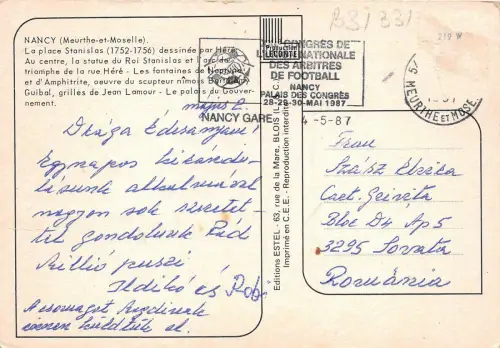 B31 B31
219 W
NANCY (Meurthe-et-Moselle).
La place Stanislas (1752-1756) dessinée par Héré.
Au centre, la statue du Roi Stanislas et l'arc de
triomphe de la rue Héré - Les fontaines de Neptune
et d'Amphitrite, oeuvre du scupteur nîmois Barthélémy
Guibal, grilles de Jean Lamour - Le palais du Gouver-
nement.
Production
LECONTE
CONGRÈS DE
L'INTERNATIONALE
DES ARBITRES
DE FOOTBALL
NANCY
PALAIS DES CONGRÈS
28-29-30 MAI 1987
NANCY GARE
4-5-87
57
MEURTHE ET MOSELLE
május 2.
Drága Édesanyám!
Egynapos kirándu-
lásunk alkalmával
nagyon sok szeretet-
tel gondolunk Rád
Millió puszi
Ildikó és Rob.
A csomagot
címen küldtük el.
Editions ESTEL - 63, rue de la Mare, BLOIS (L.
Imprimé en C.E.E. - Reproduction interdite
Frau
Szász Elvira
Cart.
Bloc D4 Ap 5
3295 Sovata
România